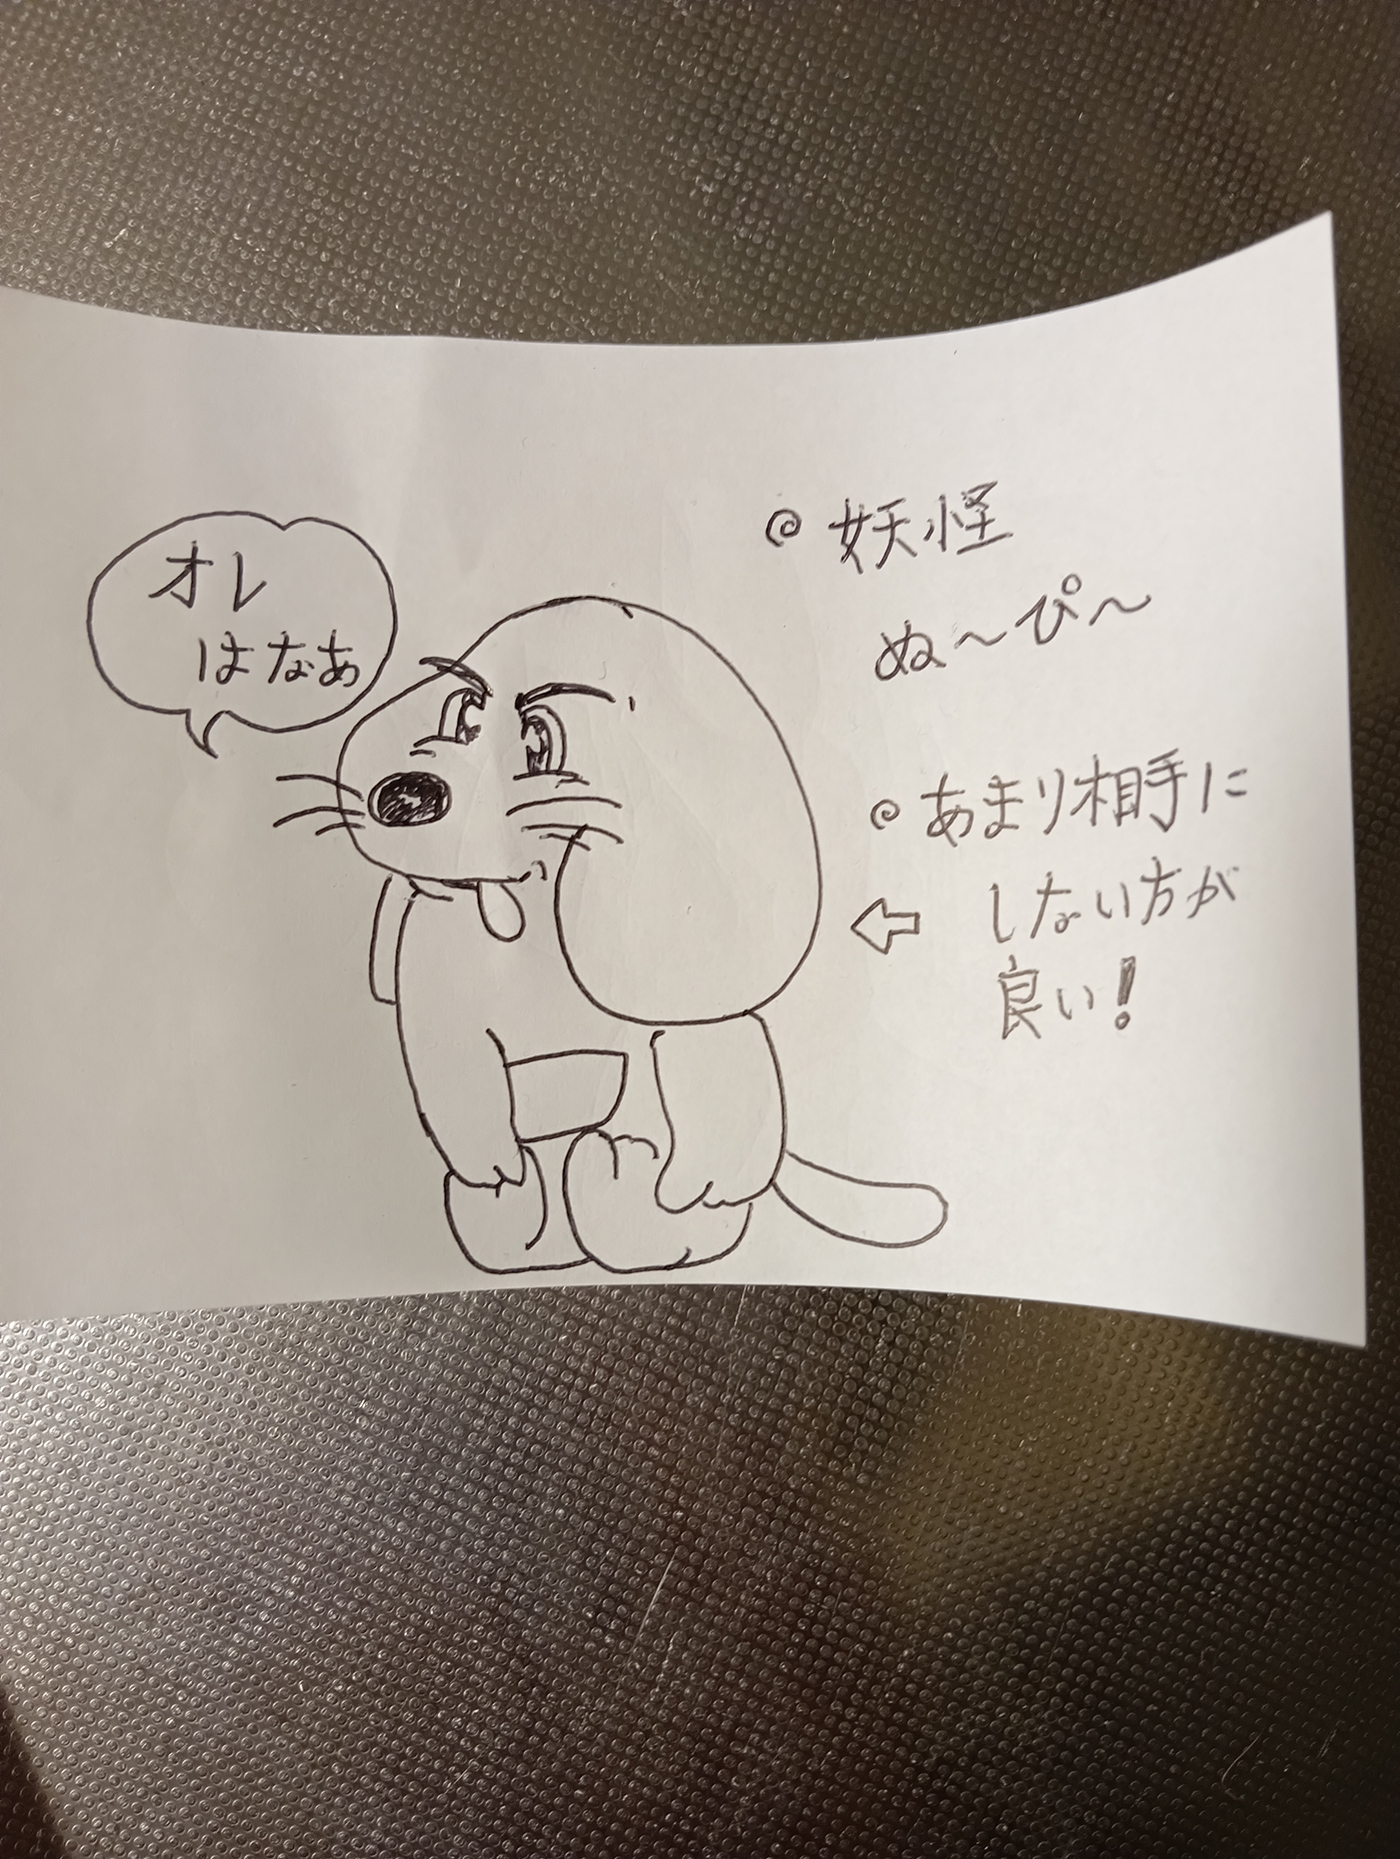 オレ
はなあ
◎ 妖怪
ぬ〜ぴ〜
◎ あまり相手に
しない方が
良い!